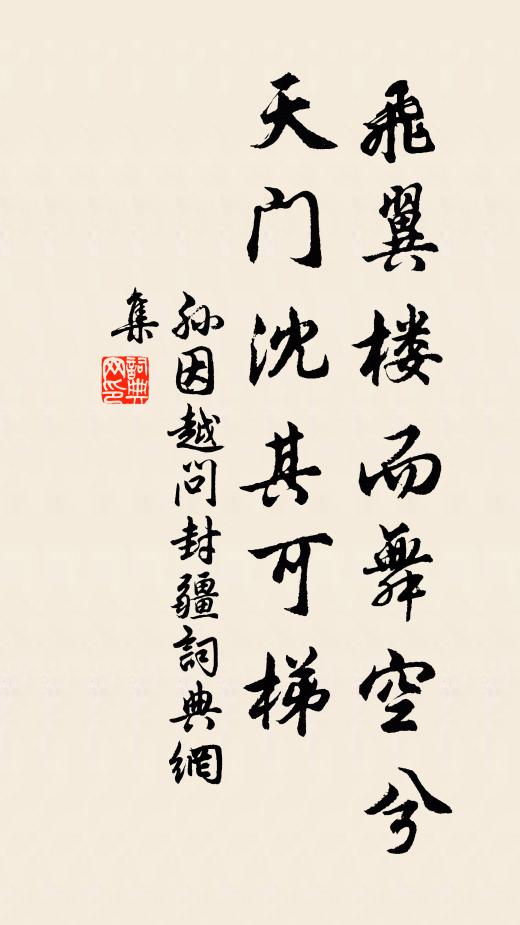 飛翼楼而舞空兮
天门沈其可梯
孙因越问封疆詞典網
集
詞典
网印